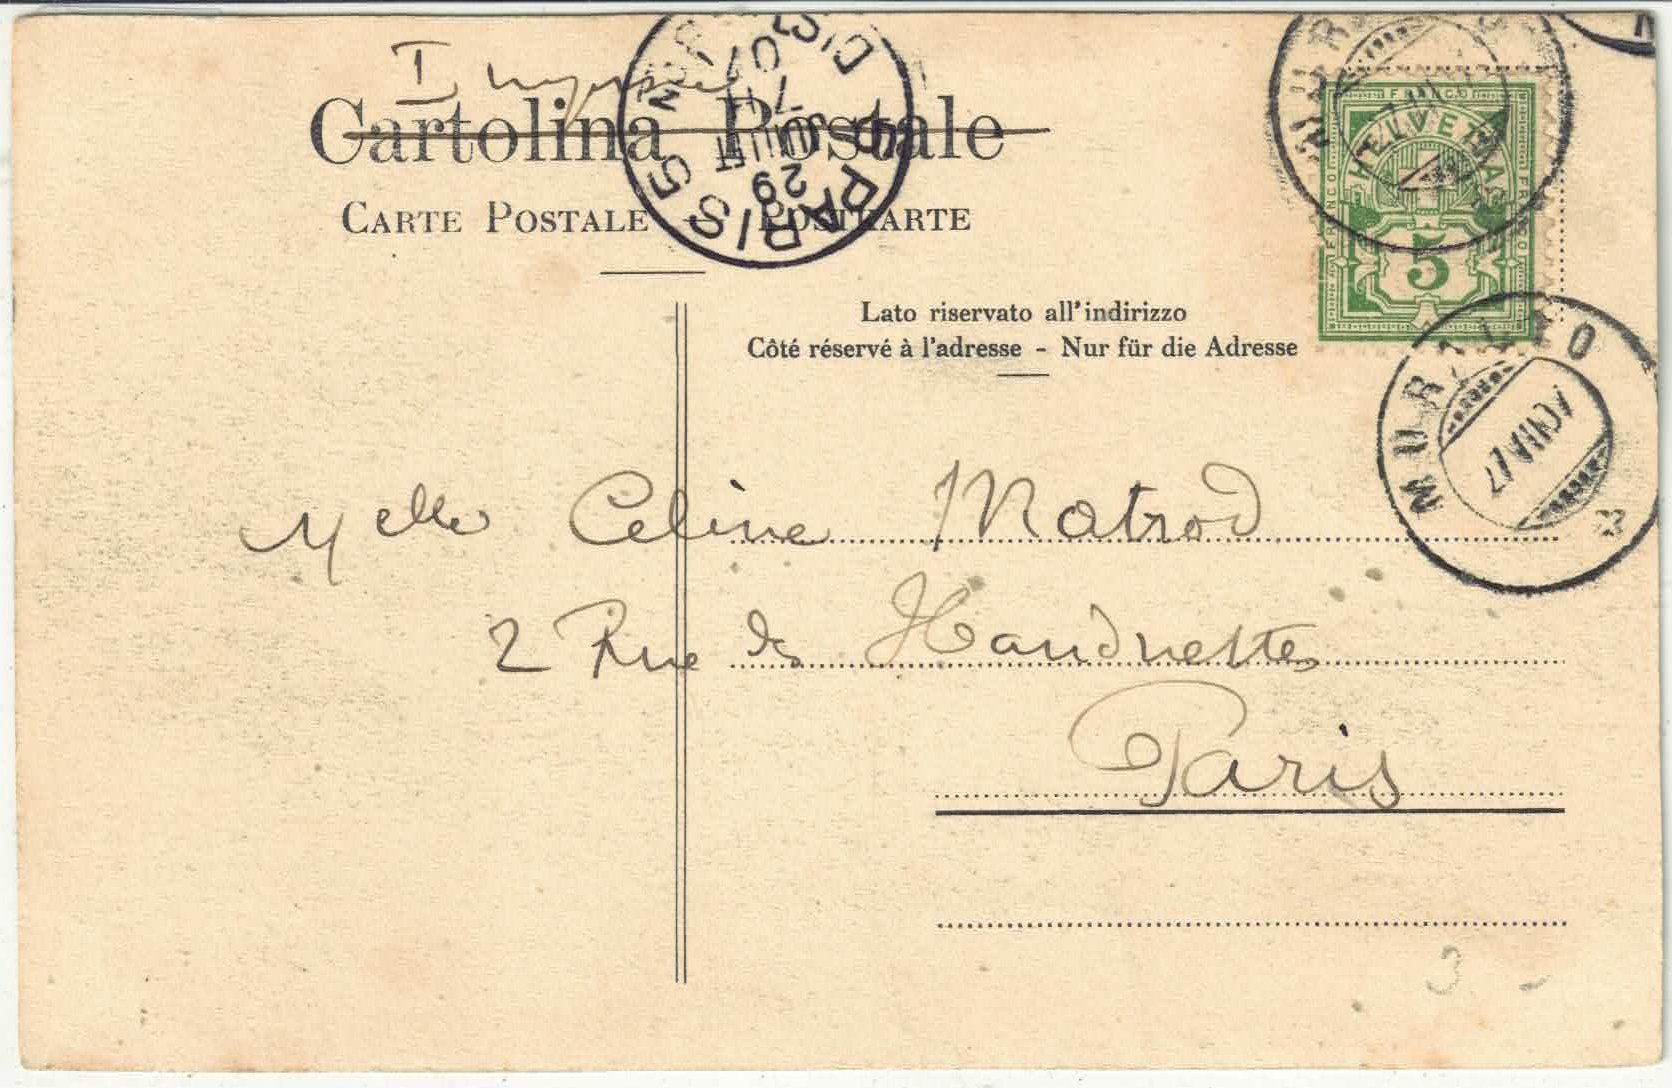 Cartolina Postale
CARTE POSTALE – POSTKARTE
Lato riservato all'indirizzo
Côté réservé à l'adresse - Nur für die Adresse
FRANCO
HELVETIA
5
MURALTO
PARIS
29
JUILT
07
Melle Celine Matrod
2 Rue des Haudriettes
Paris
3 -